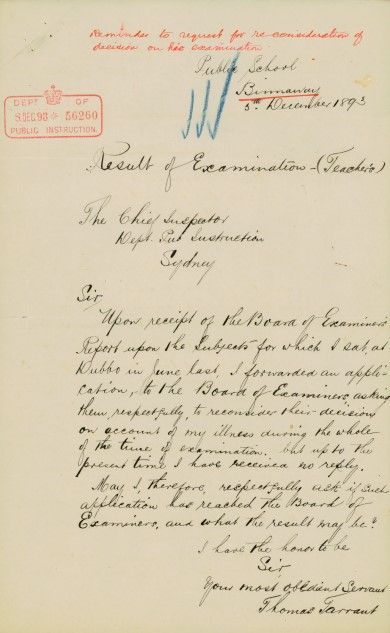 Reminder to request for re-consideration of
decision on his examination.
Public School
Binnaway
5th December 1893
DEPT OF
8.DEC.93 56260
PUBLIC INSTRUCTION.
Result of Examination - (Teacher's)
The Chief Inspector
Dept. Pub Instruction
Sydney
Sir
Upon receipt of the Board of Examiners'
Report upon the Subjects for which I sat, at
Dubbo in June last, I forwarded an appli-
cation, to the Board of Examiners, asking
them, respectfully, to reconsider their decisions
on account of my illness during the whole
of the time of examination. but up to the
present time I have received no reply.
May I, therefore, respectfully ask if such
application has reached the Board of
Examiners, and what the result may be?
I have the honor to be
Sir
Your most obedient Servant
Thomas Tarrant